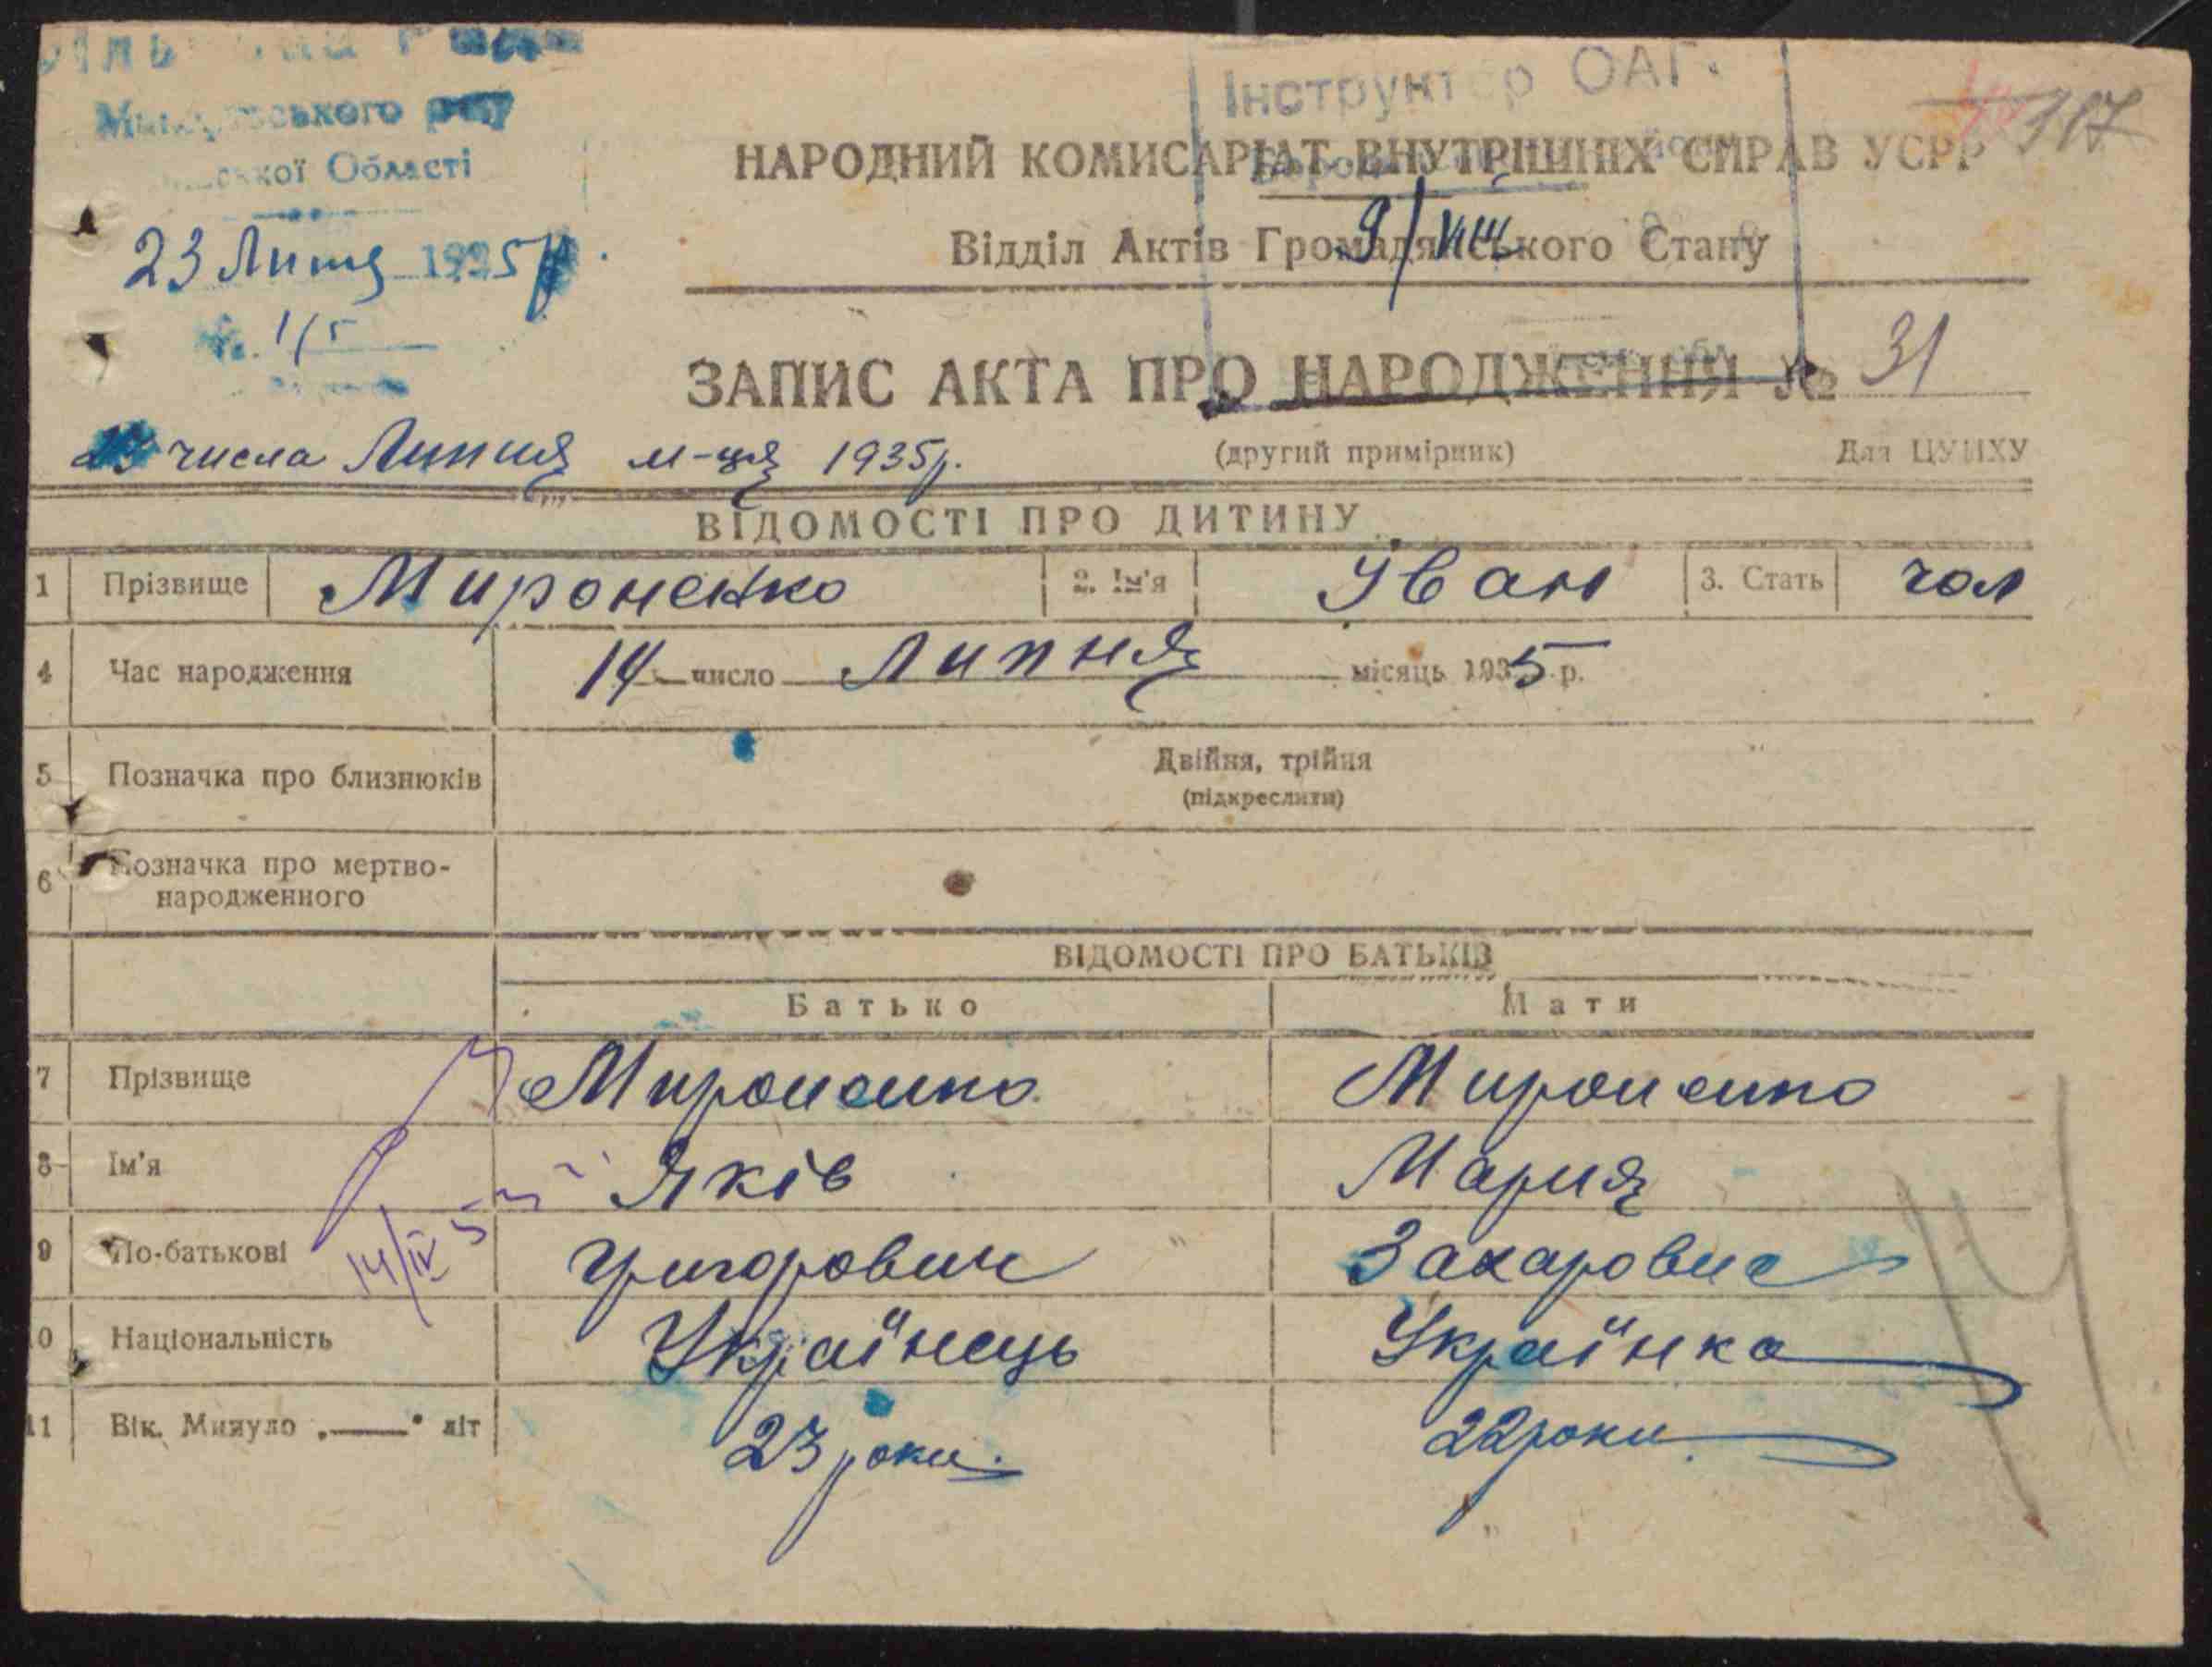 Області
23 Липня 1935 р.
1/5
Інструктор ОАГС
317
НАРОДНИЙ КОМИСАРІАТ ВНУТРІШНІХ СПРАВ УСРР
Відділ Актів Громадянського Стану
9/VIII
ЗАПИС АКТА ПРО НАРОДЖЕННЯ № 31
23 числа Липня м-ця 1935р.
(другий примірник) Для ЦУНХУ
ВІДОМОСТІ ПРО ДИТИНУ
1 Прізвище Мироненко 2. Ім'я Іван 3. Стать чол
4 Час народження 14 число Липня місяць 1935 р.
5 Позначка про близнюків Двійня, трійня
(підкреслити)
6 Позначка про мертво-
народженного
ВІДОМОСТІ ПРО БАТЬКІВ
Батько Мати
7 Прізвище Мироненко Мироненко
8 Ім'я Яків Мария
9 По-батькові Григорович Захаровне
14/IV 5
0 Національність Українець Українка
11 Вік. Минуло „——“ літ 23 роки. 22 роки